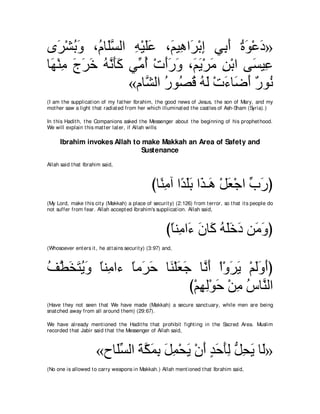 «دَعْوَةُ أَبِي إِبْرَاهِيمَ، عَلَيْهِ السَّلَامُ، وَبُشْرَى
عِيسَى ابْنِ مَرْيَمَ، وَرَأَتْ أُمِّي كَأَنَّهُ خَرَجَ مِنْهَا
نُورٌ أَضَاءَتْ لَهُ قُصُورُ الشَّامِ»
(I am the supplication of my father Ibrahim, the good news of Jesus, the son of Mary, and my
mother saw a light that radiated from her which illuminated the castles of Ash-Sham (Syria).)
In this Hadith, the Companions asked the Messenger about the beginning of his prophethood.
We will explain this matter later, if Allah wills
Ibrahim invokes Allah to make Makkah an Area of Safety and
Sustenance
Allah said that Ibrahim said,
(رَبِّ اجْعَلْ هَـذَا بَلَدًا آمِنًا)
(My Lord, make this city (Makkah) a place of security) (2:126) from terror, so that its people do
not suffer from fear. Allah accepted Ibrahim's supplication. Allah said,
(وَمَن دَخَلَهُ كَانَ ءَامِنًا)
(Whosoever enters it, he attains security) (3:97) and,
(أَوَلَمْ يَرَوْاْ أَنَّا جَعَلْنَا حَرَماً ءامِناً وَيُتَخَطَّفُ
النَّاسُ مِنْ حَوْلِهِمْ)
(Have they not seen that We have made (Makkah) a secure sanctuary, while men are being
snatched away from all around them) (29:67).
We have already mentioned the Hadiths that prohibit fighting in the Sacred Area. Muslim
recorded that Jabir said that the Messenger of Allah said,
«لَا يَحِلُّ لِأَحَدٍ أَنْ يَحْمِلَ بِمَكَّةَ السِّلَاحَ»
(No one is allowed to carry weapons in Makkah.) Allah mentioned that Ibrahim said,